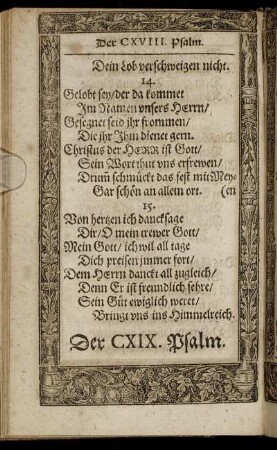 Der CXVIII. Psalm.
Dein Lob verschweigen nicht.
14.
Gelobt sey/ der da kommet
Im Namen vnsers HErrn/
Gesegnet seid jhr frommen/
Die jhr Jhm dienet gern.
Christus der HERR ist Gott/
Sein Wort thut vns erfrewen/
Drum̃ schmückt das fest mit Mey-
Gar schön an allem ort. (en
15.
Von hertzen ich dancksage
Dir/ O mein trewer Gott/
Mein Gott/ ich wil all tage
Dich preisen jmmer fort/
Dem HErrn danckt all zugleich/
Denn Er ist freundlich sehre/
Sein Güt ewiglich weret/
Bringt vns ins Himmelreich.
Der CXIX. Psalm.